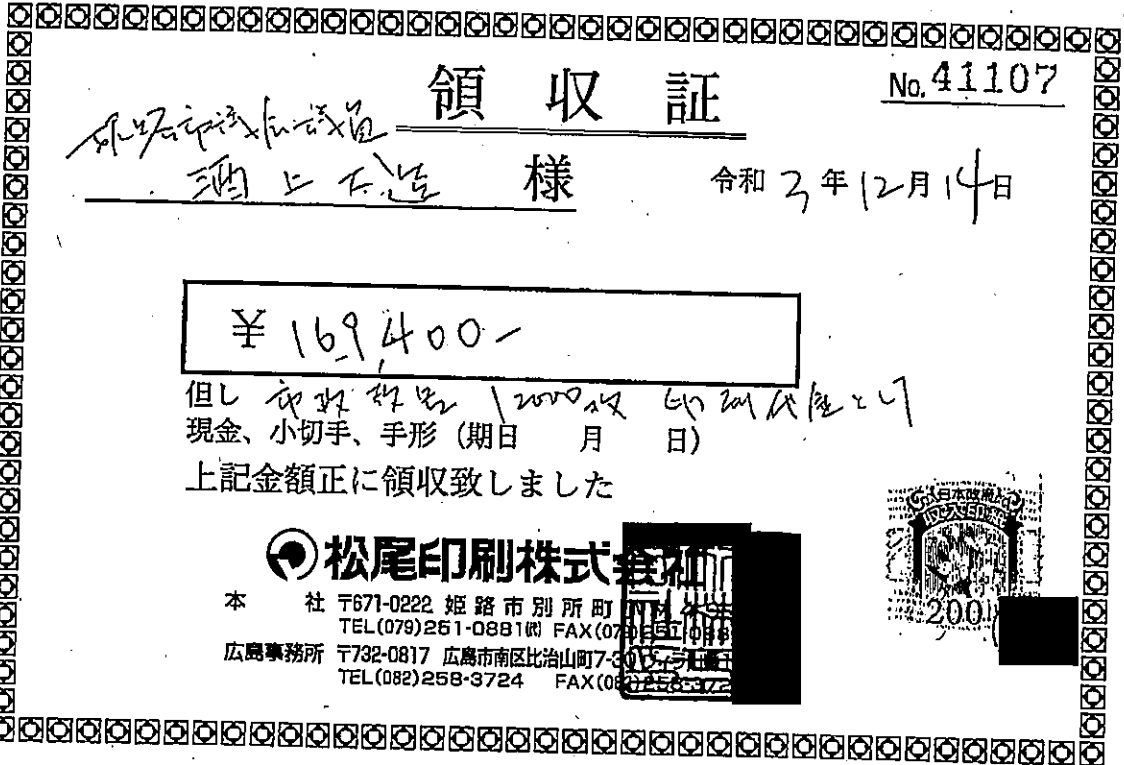 領収証
No.41107
姫路市議会議員
酒上太造 様
令和 3年12月14日
¥169,400-
但し 市政報告 12000枚 印刷代金として
現金、小切手、手形(期日 月 日)
上記金額正に領収致しました
松尾印刷株式会社
本 社 〒671-0222 姫路市別所町
TEL(079)251-0881㈹ FAX(079)251-088
広島事務所 〒732-0817 広島市南区比治山町7-30
TEL(082)258-3724 FAX(082)258-372
日本政府
収入印紙
200